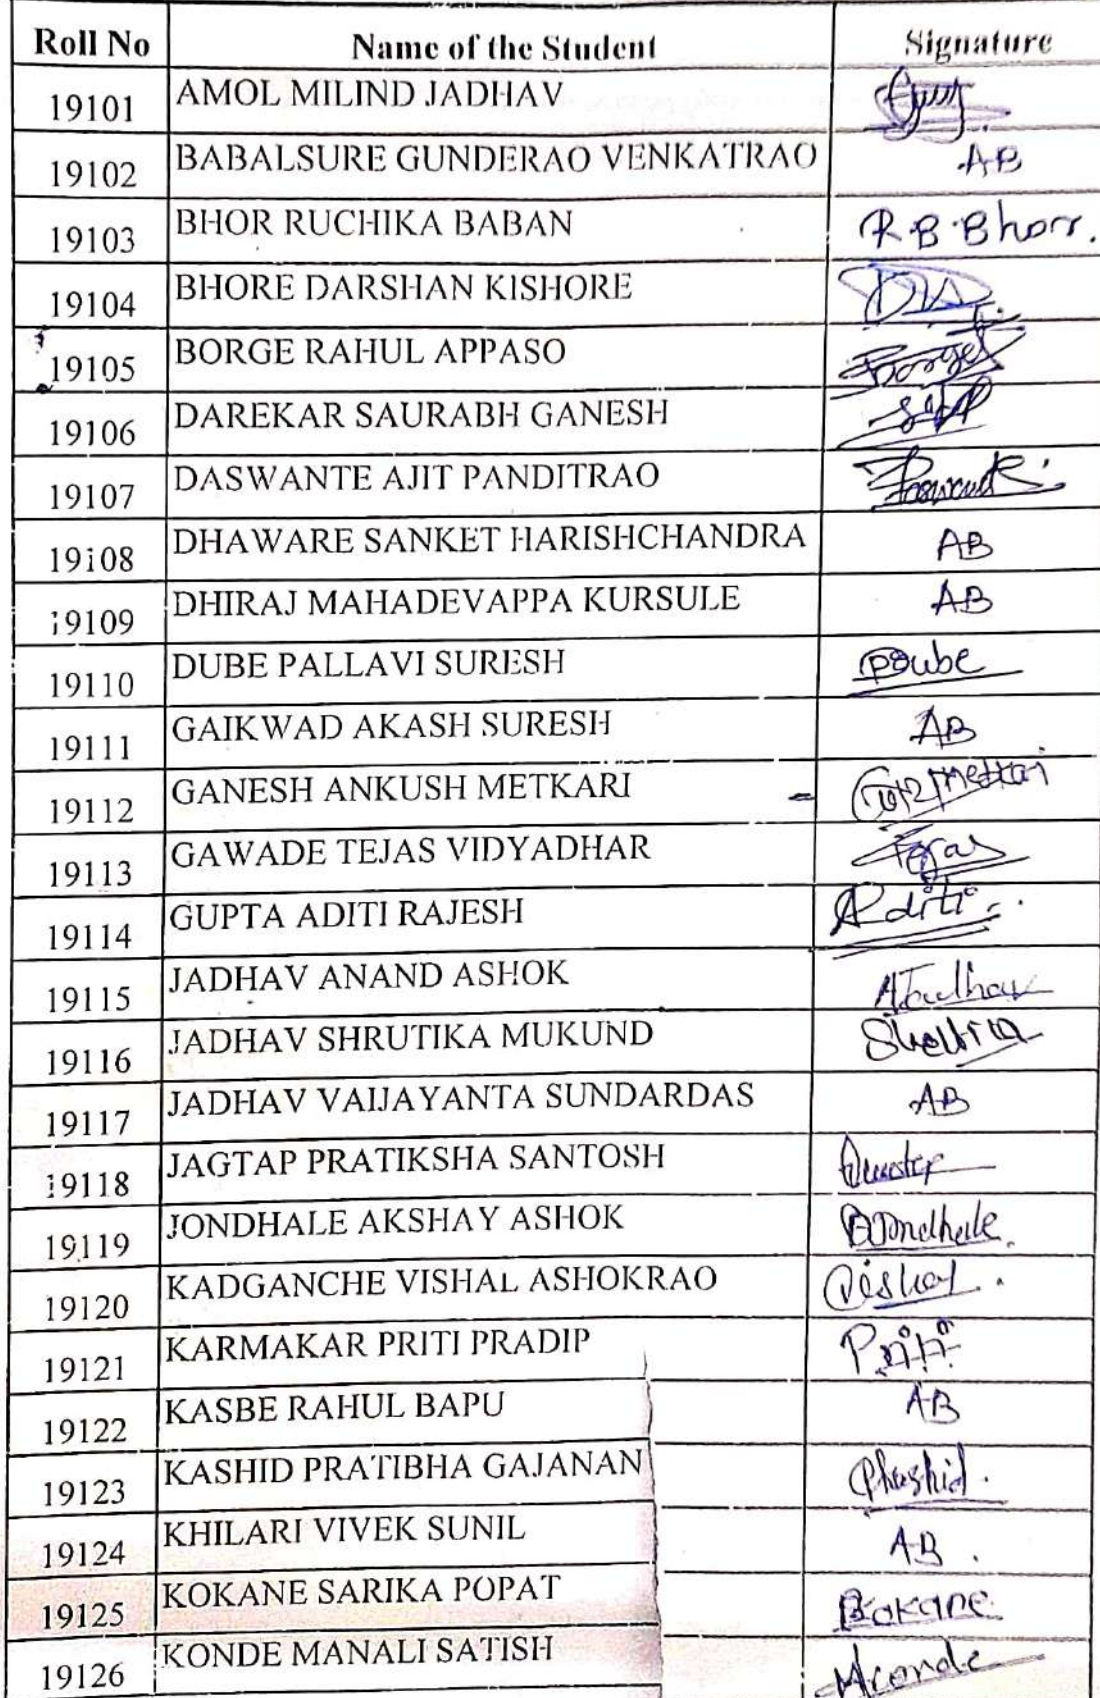 Roll No Name of the Student Signature
19101 AMOL MILIND JADHAV
19102 BABALSURE GUNDERAO VENKATRAO AB
19103 BHOR RUCHIKA BABAN R.B.Bhor.
19104 BHORE DARSHAN KISHORE
19105 BORGE RAHUL APPASO Borge
19106 DAREKAR SAURABH GANESH
19107 DASWANTE AJIT PANDITRAO
19108 DHAWARE SANKET HARISHCHANDRA AB
19109 DHIRAJ MAHADEVAPPA KURSULE AB
19110 DUBE PALLAVI SURESH PDube
19111 GAIKWAD AKASH SURESH AB
19112 GANESH ANKUSH METKARI
19113 GAWADE TEJAS VIDYADHAR Tejas
19114 GUPTA ADITI RAJESH Aditi
19115 JADHAV ANAND ASHOK AJadhav
19116 JADHAV SHRUTIKA MUKUND
19117 JADHAV VAIJAYANTA SUNDARDAS AB
19118 JAGTAP PRATIKSHA SANTOSH
19119 JONDHALE AKSHAY ASHOK
19120 KADGANCHE VISHAL ASHOKRAO Vishal
19121 KARMAKAR PRITI PRADIP Priti
19122 KASBE RAHUL BAPU AB
19123 KASHID PRATIBHA GAJANAN
19124 KHILARI VIVEK SUNIL AB
19125 KOKANE SARIKA POPAT
19126 KONDE MANALI SATISH